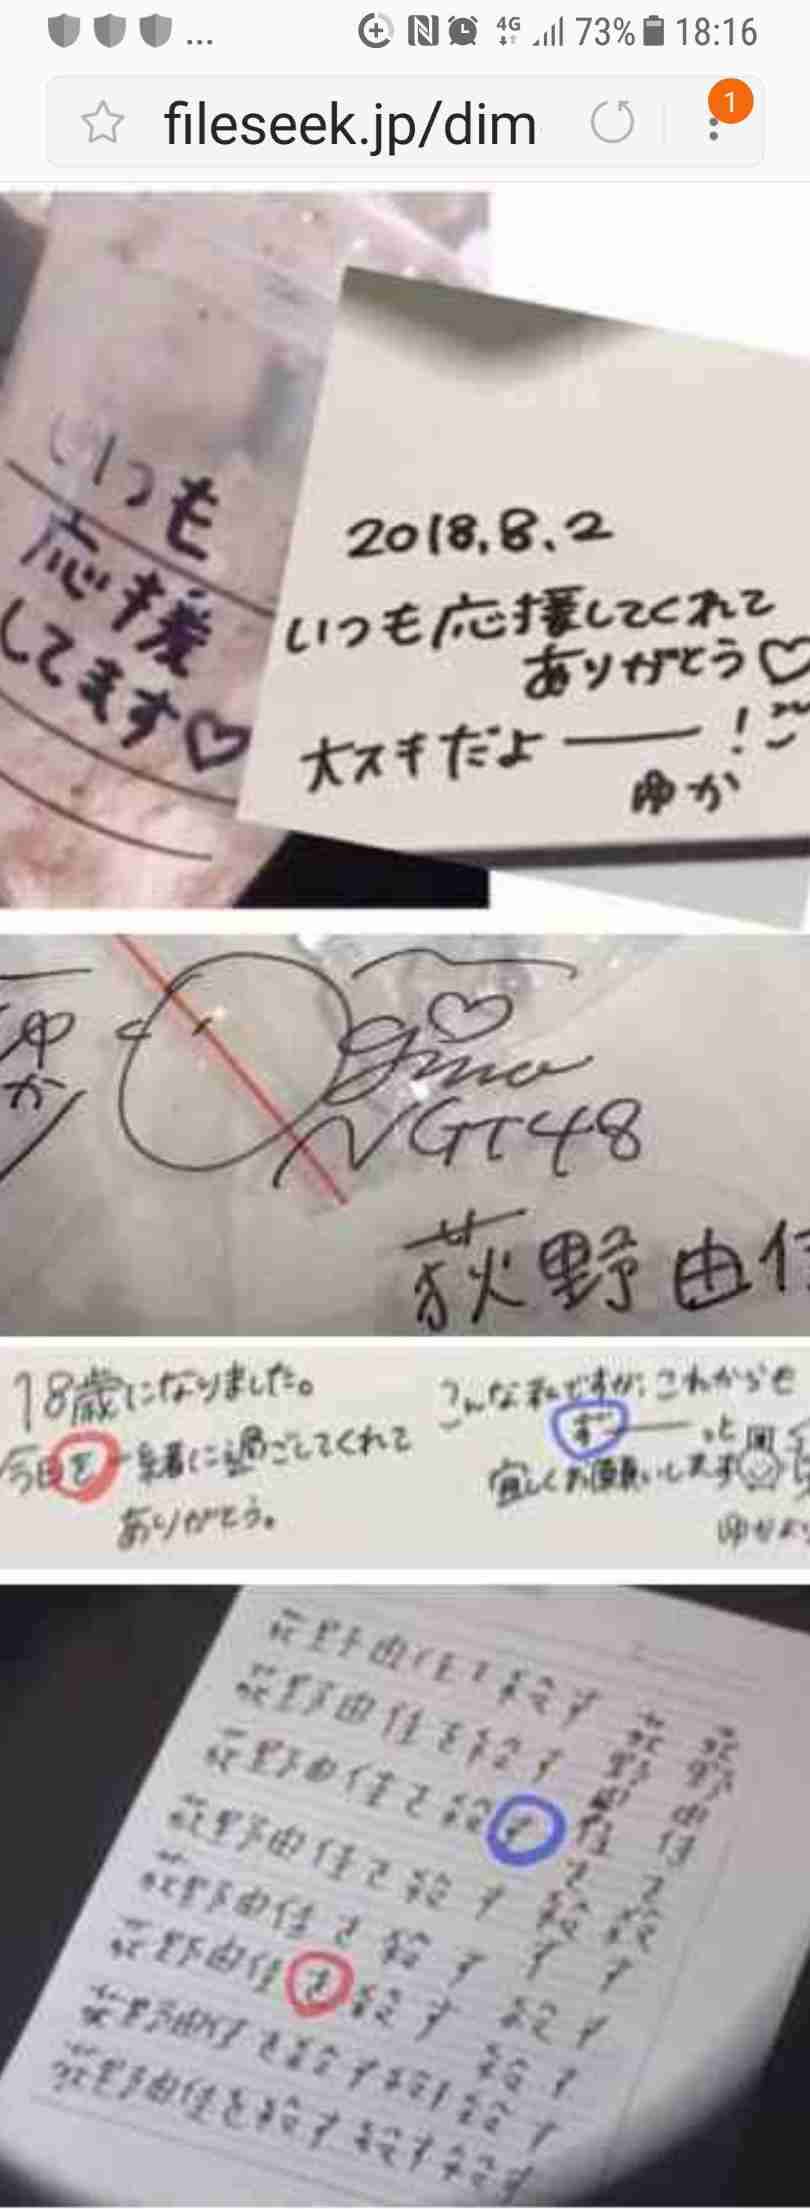 73% 18:16
4G
fileseek.jp/dim
1
いつも
応援
してます♡
2018.8.2
いつも応援してくれて
ありがとう♡
大スキだよ――!
ゆか
ゆか
NGT48
荻野由
18歳になりました。
今日を一緒に過ごしてくれて
ありがとう。
こんな私ですが、これからも
ず――っと
宜しくお願いします
ゆかより
荻野由佳を殺す
荻野由佳を殺す
荻野由佳を殺す
荻野由佳を殺す
荻野由佳を殺す
荻野由佳を殺す 殺す
荻野由佳を殺す殺す殺す
荻野由佳を殺す殺す殺す
荻野由佳を殺す
荻野由佳を殺す